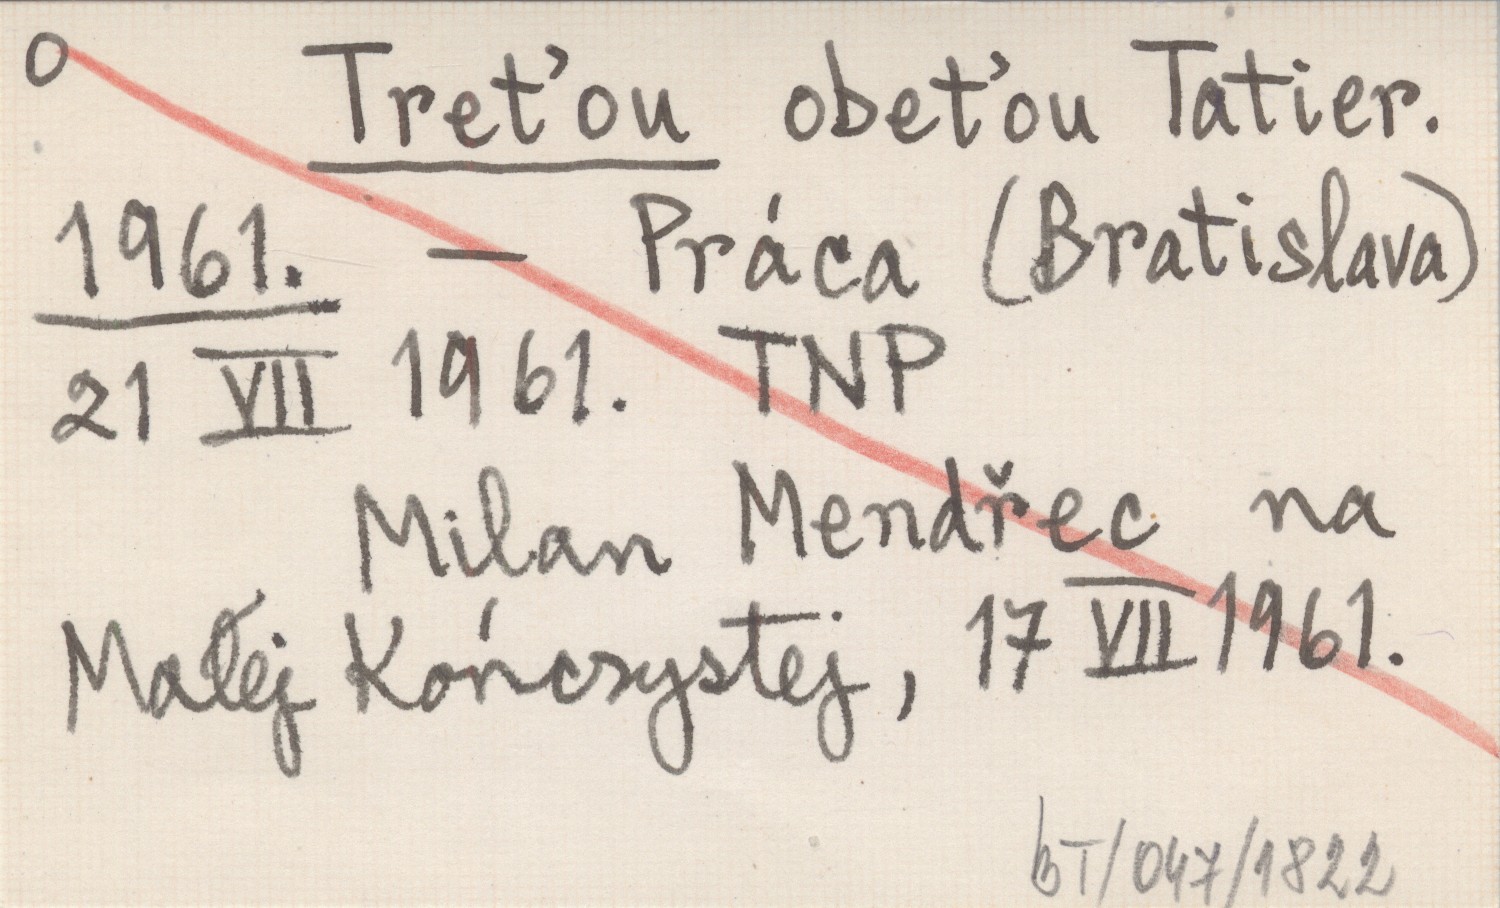 O Treťou obeťou Tatier.
1961. — Práca (Bratislava)
21 VII 1961. TNP
Milan Mendřec na
Małej Kończystej, 17 VII 1961.
BT/047/1822